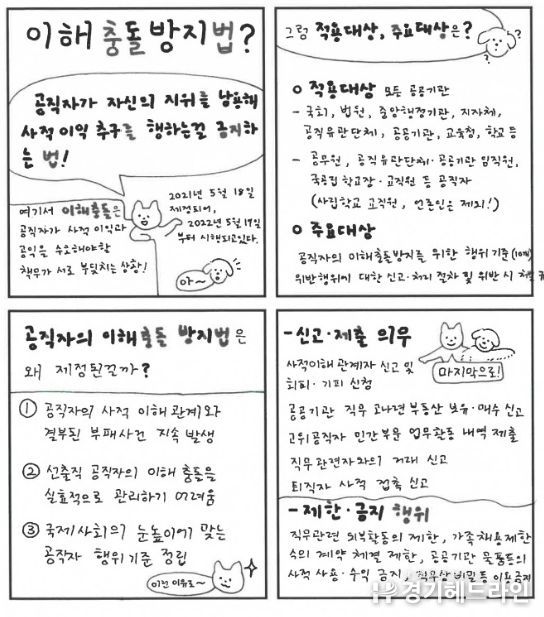 이해충돌방지법?
공직자가 자신의 지위를 남용해
사적 이익 추구를 행하는걸 금지하
는 법!
여기서 이해충돌은
공직자가 사적 이익과
공익을 수호해야할
책무가 서로 부딪치는 상황!
2021년 5월 18일
제정되어,
2022년 5월 19일
부터 시행되고있다.
아~
그럼 적용대상, 주요대상은?
적용대상 모든 공공기관
- 국회, 법원, 중앙행정기관, 지자체,
공직유관단체, 공공기관, 교육청, 학교 등
- 공무원, 공직유관단체·공공기관 임직원,
국공립 학교장·교직원 등 공직자
(사립학교 교직원, 언론인은 제외!)
주요대상
공직자의 이해충돌방지를 위한 행위기준(10개)
위반행위에 대한 신고·처리 절차 및 위반 시 처벌
공직자의 이해충돌 방지법은
왜 제정된걸까?
① 공직자의 사적 이해관계와
결부된 부패사건 지속 발생
② 선출직 공직자의 이해 충돌을
실효적으로 관리하기 어려움
③ 국제사회의 눈높이에 맞는
공직자 행위기준 정립
이런 이유로~
- 신고·제출 의무
마지막으로!
사적이해 관계자 신고 및
회피·기피 신청
공공기관 직무 관련 부동산 보유·매수 신고
고위공직자 민간부문 업무활동 내역 제출
직무관련자와의 거래 신고
퇴직자 사적 접촉 신고
- 제한·금지 행위
직무관련 외부활동의 제한, 가족채용제한
수의 계약 체결 제한, 공공기관 물품등의
사적 사용·수익 금지, 직무상 비밀 등 이용금지
경기헤드라인